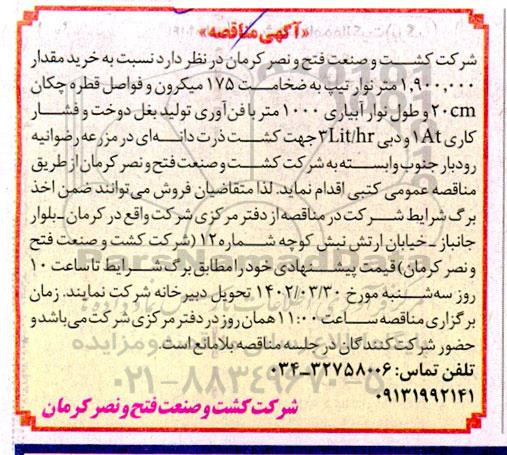 «آگهی مناقصه»
شرکت کشت و صنعت فتح و نصر کرمان در نظر دارد نسبت به خرید مقدار
۱,۹۰۰,۰۰۰ متر نوار تیپ به ضخامت ۱۷۵ میکرون و فواصل قطره چکان
۲۰cm و طول نوار آبیاری ۱۰۰۰ متر با فن آوری تولید بغل دوخت و فشار
کاری ۱At و دبی ۳Lit/hr جهت کشت ذرت دانه‌ای در مزرعه رضوانیه
رودبار جنوب وابسته به شرکت کشت و صنعت فتح و نصر کرمان از طریق
مناقصه عمومی کتبی اقدام نماید. لذا متقاضیان فروش می‌توانند ضمن اخذ
برگ شرایط شرکت در مناقصه از دفتر مرکزی شرکت واقع در کرمان ـ بلوار
جانباز ـ خیابان ارتش نبش کوچه شماره ۱۲ (شرکت کشت و صنعت فتح
و نصر کرمان) قیمت پیشنهادی خود را مطابق برگ شرایط تا ساعت ۱۰
روز سه‌شنبه مورخ ۱۴۰۲/۰۳/۳۰ تحویل دبیرخانه شرکت نمایند. زمان
برگزاری مناقصه ساعت ۱۱:۰۰ همان روز در دفتر مرکزی شرکت می‌باشد و
حضور شرکت کنندگان در جلسه مناقصه بلامانع است.
تلفن تماس: ۳۲۷۵۸۰۰۶-۰۳۴
۰۹۱۳۱۹۹۲۱۴۱
شرکت کشت و صنعت فتح و نصر کرمان
ParsNamadData
۰۲۱-۸۸۳۴۹۶۷۰-۵